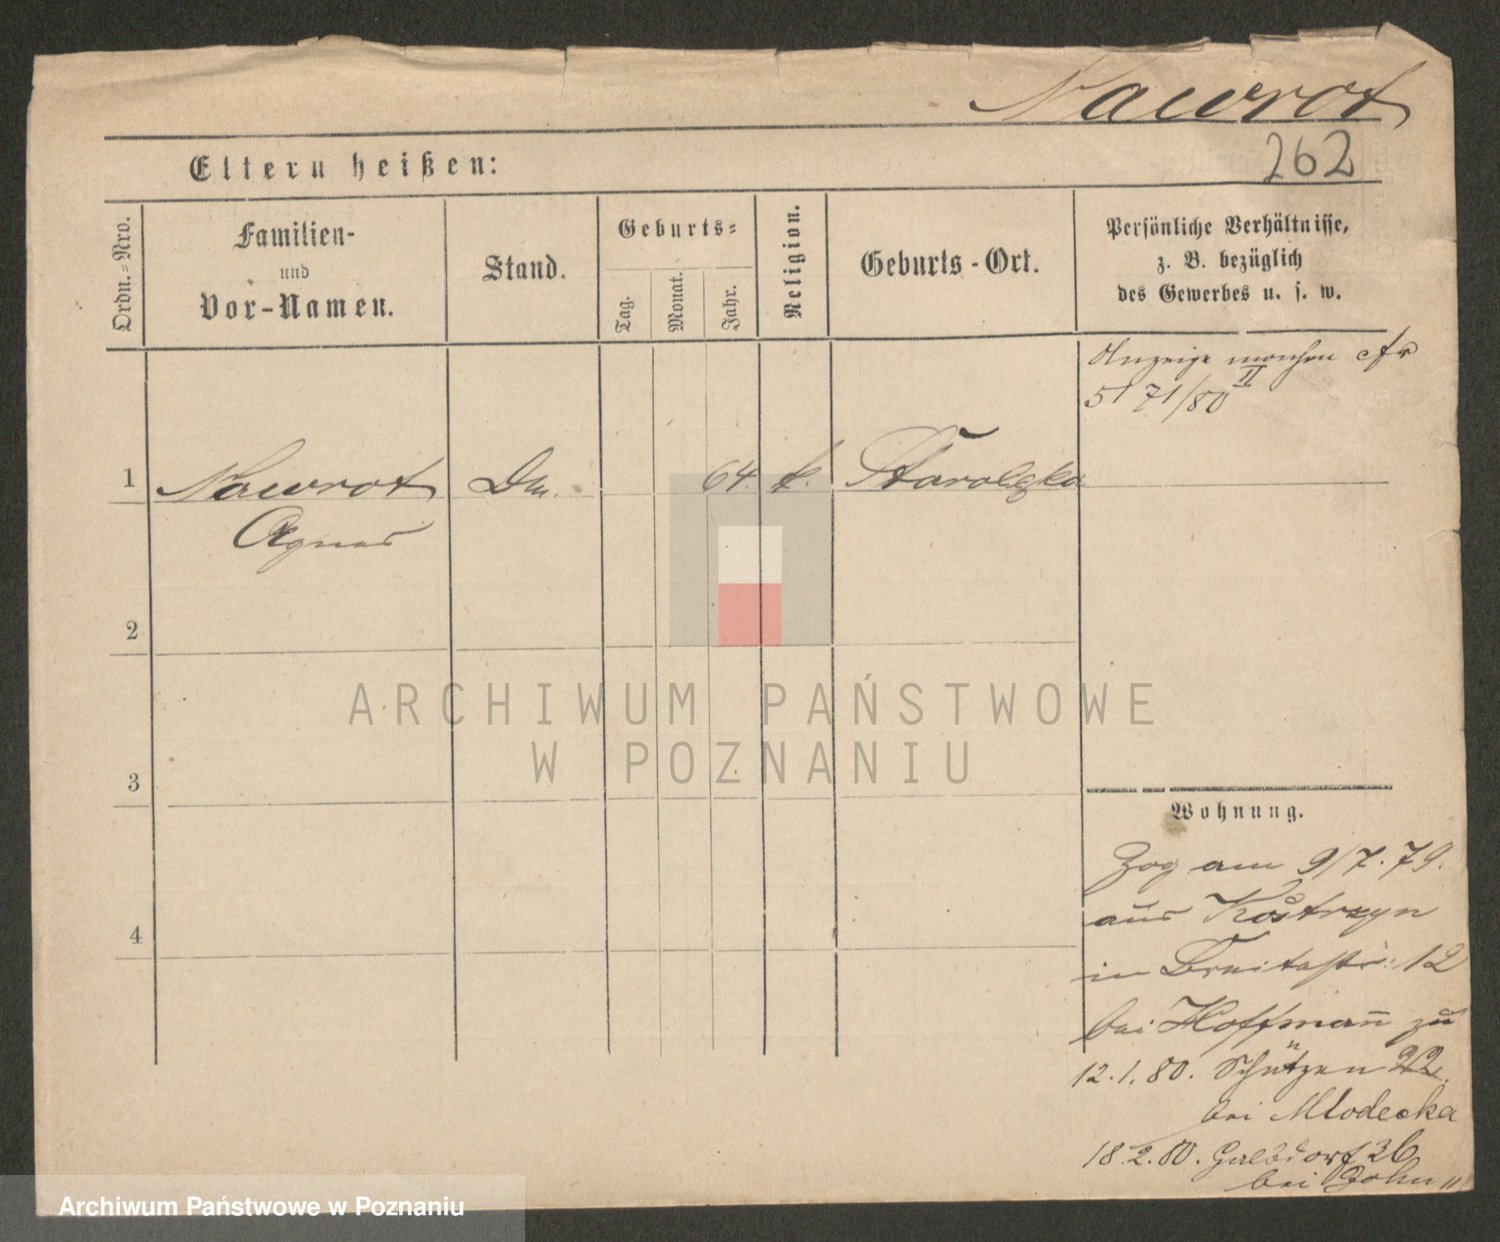 Nawrot
262
Eltern heißen:
Ordn.=Nro.
Familien-
und
Vor-Namen.
Stand.
Geburts=
Tag.
Monat.
Jahr.
Religion.
Geburts-Ort.
Persönliche Verhältnisse,
z. B. bezüglich
des Gewerbes u. s. w.
Anzeige cfr
II
51 71/80
1 Nawrot Dm. 64. k. Starolęka
Agnes
2
3
4
Wohnung.
Zog am 9/7. 79.
aus Kostrzyn
in Breitestr: 12
bei Hoffmann zu
12. 1. 80. Schützen 22.
bei Młodecka
18. 2. 80. Halbdorf 36
bei
ARCHIWUM PAŃSTWOWE
W POZNANIU
Archiwum Państwowe w Poznaniu